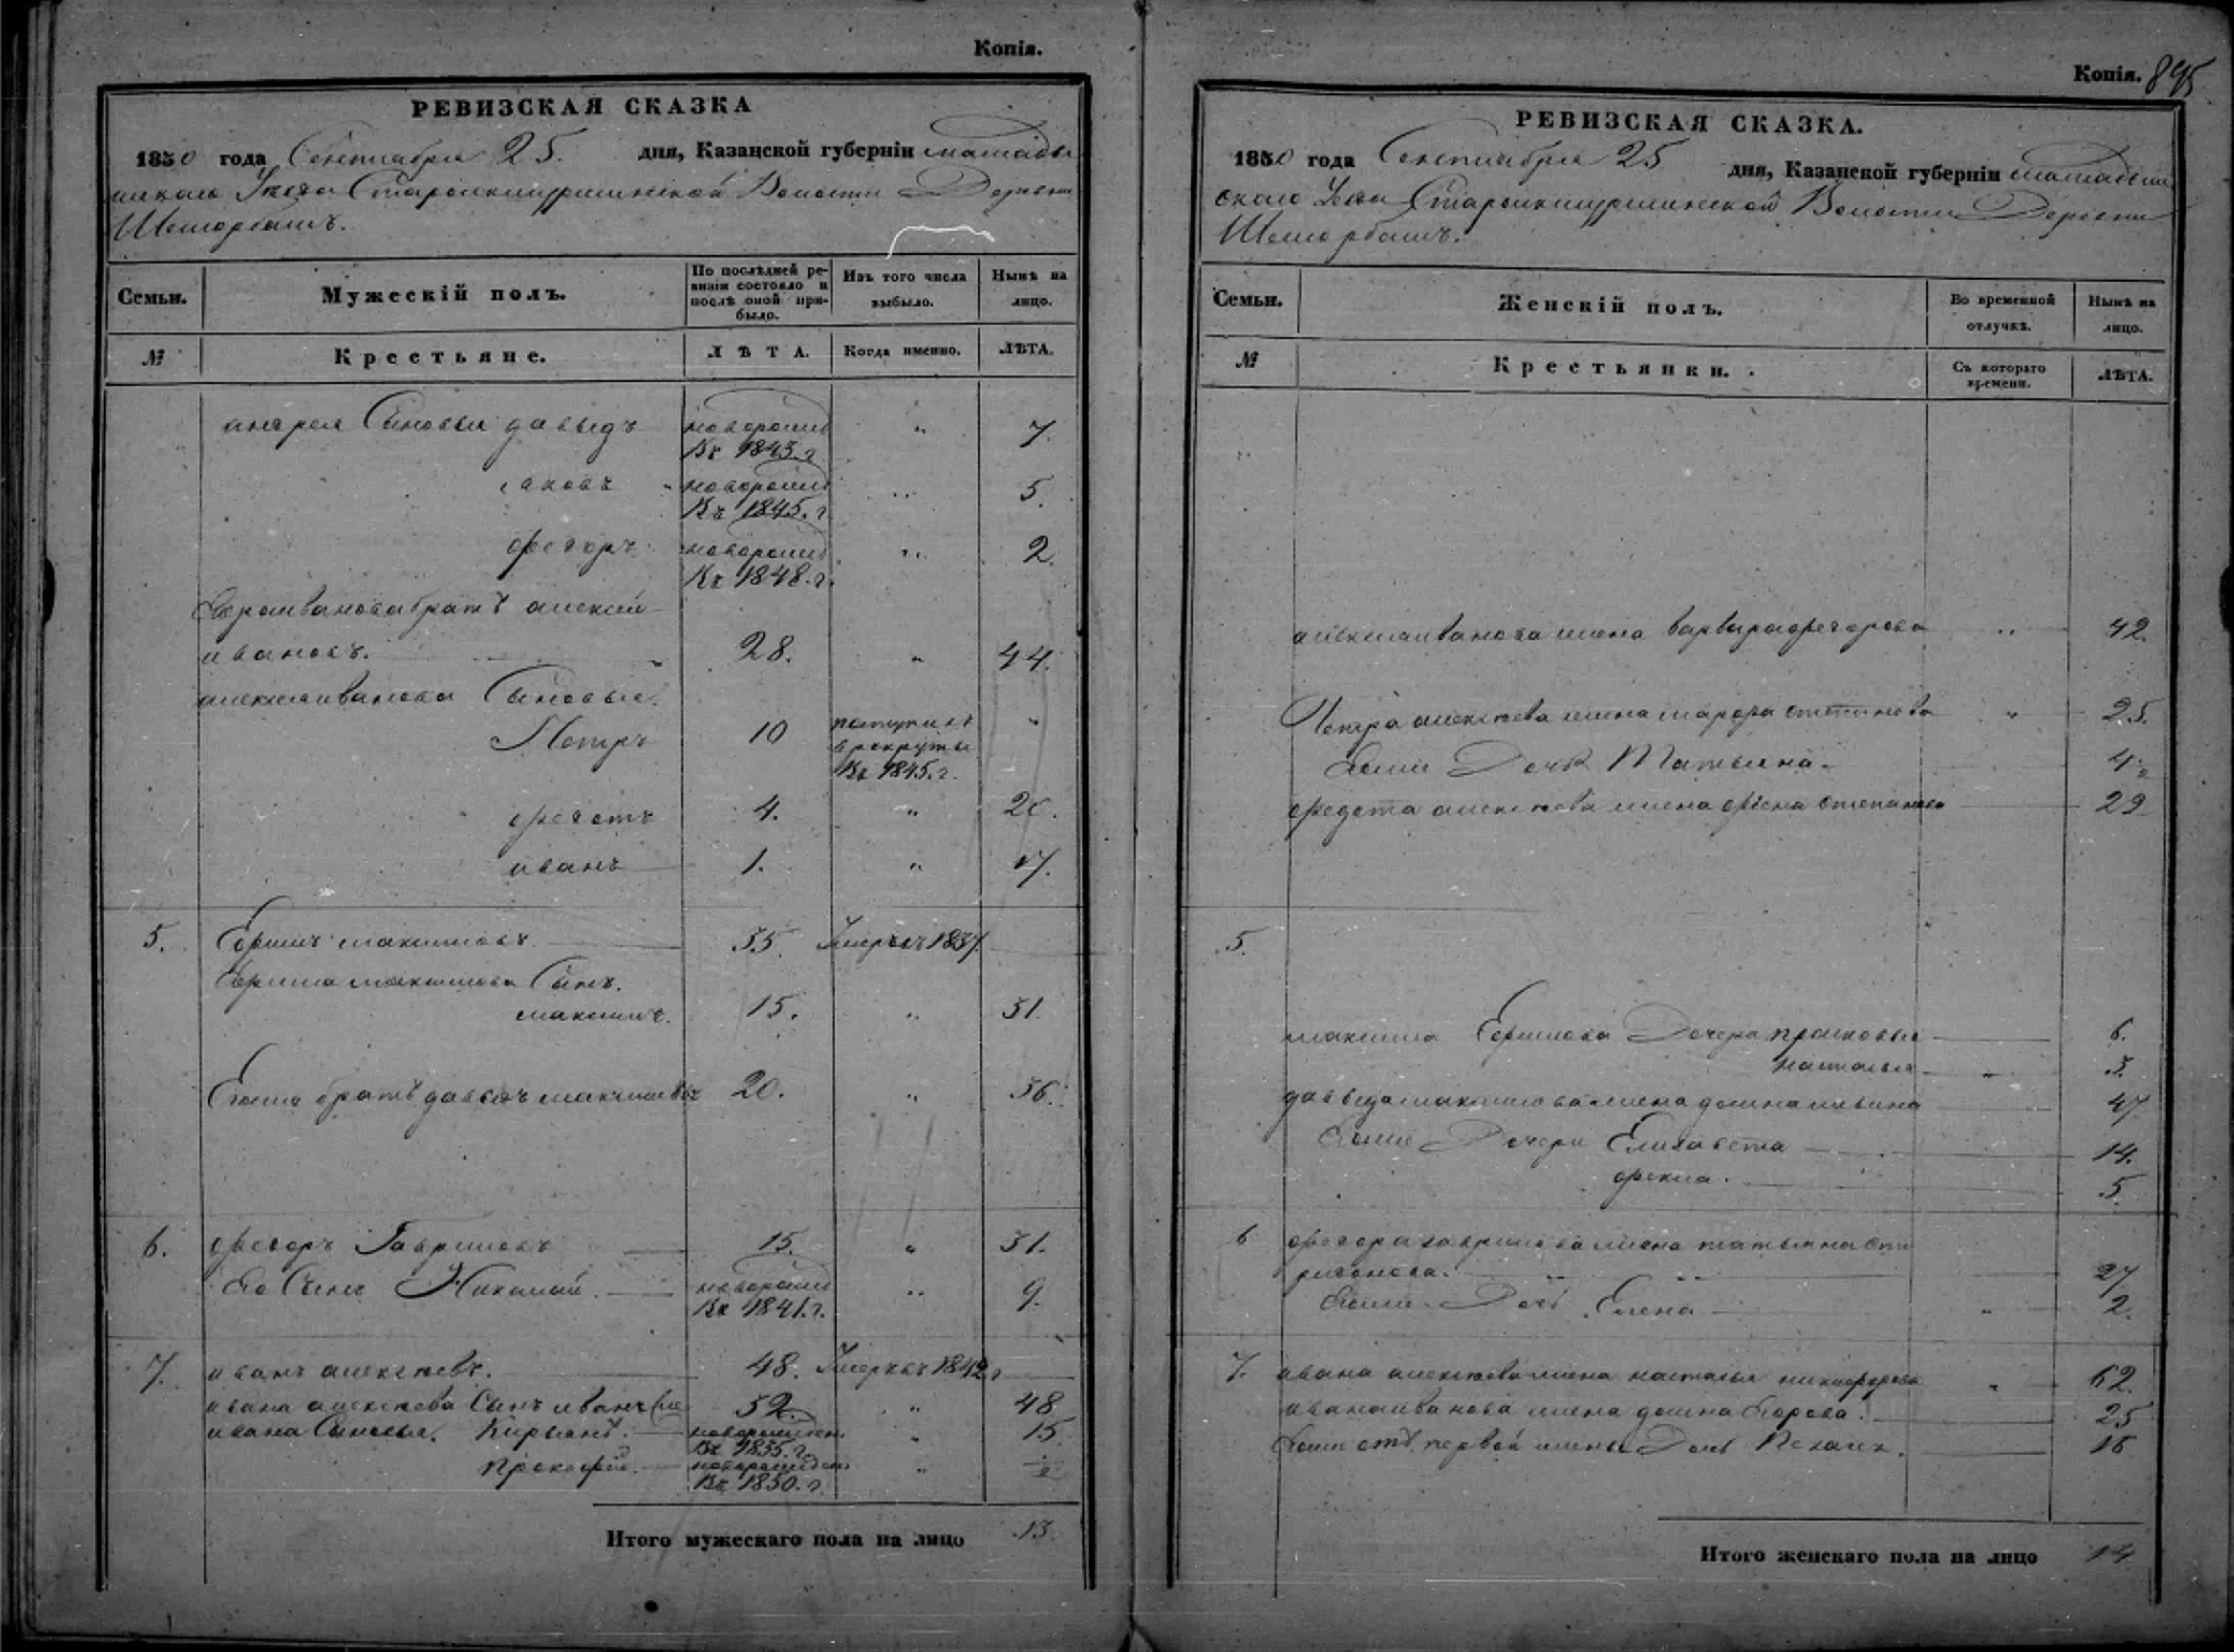 Копія.
РЕВИЗСКАЯ СКАЗКА
1850 года Сентября 25. дня, Казанской губерніи мамады
шскаго Уезда Старомкушинской Волости Деревни
Шеморбашъ.
Семьи. Мужескій полъ. По послѣдней ре-
визіи состояло и
послѣ оной при-
было. Изъ того числа
выбыло. Нынѣ на
лицо.
№ Крестьяне. ЛѢТА. Когда именно. ЛѢТА.
андрея Сыновья давыдъ новорожд
Въ 1843. г. " 7.
яковъ новорожд
Въ 1845. г. " 5.
федоръ новорожд
Въ 1848. г. " 2.
братъ алексей
ивановъ. 28. " 44.
алексея иванова Сыновья.
Петръ 10 поступилъ
в рекруты
Въ 1845. г. "
федотъ 4. " 20.
иванъ 1. " 17.
5. Ефимъ максимовъ 35. Умеръ въ 1837.
Ефима максимова Сынъ.
максимъ. 15. " 31.
Ефима братъ давыдъ максимовъ 20. " 36.
6. федоръ Гавриловъ 15. " 31.
Его Сынъ Николай. новорожд
Въ 1841. г. " 9.
7. иванъ алексеевъ. 48. Умеръ въ 1842 г
ивана алексеева Сынъ иванъ 32. " 48
ивана Сыновья. Кирьянъ. новорожден
Въ 1835. г. " 15
прокофей. новорожден
Въ 1850. г. "
Итого мужескаго пола на лицо 13.
Копія. 895
РЕВИЗСКАЯ СКАЗКА.
1850 года Сентября 25 дня, Казанской губерніи мамадыш
скаго Уезда Старомкушинской Волости Деревни
Шеморбашъ.
Семьи. Женскій полъ. Во временной
отлучкѣ. Нынѣ на
лицо.
№ Крестьянки. Съ котораго
времени. ЛѢТА.
алексея иванова жена варвара федорова " 42.
Петра алексеева жена марфа степанова " 25.
Ихъ Дочь Татьяна 4.
федота алексеева жена степанова 29
5.
максима Ефимова Дочери прасковья 6.
наталья " 3.
давыда максимова жена домна 47
Ихъ Дочери Елизавета 14.
фекла. 5
6 федора гаврилова жена татьяна
27
Ихъ Дочь Елена " 2.
7. ивана алексеева жена наталья никифорова " 62.
ивана иванова жена домна Егорова. 25
отъ первой жены Дочь Пелагея. 16
Итого женскаго пола на лицо 14